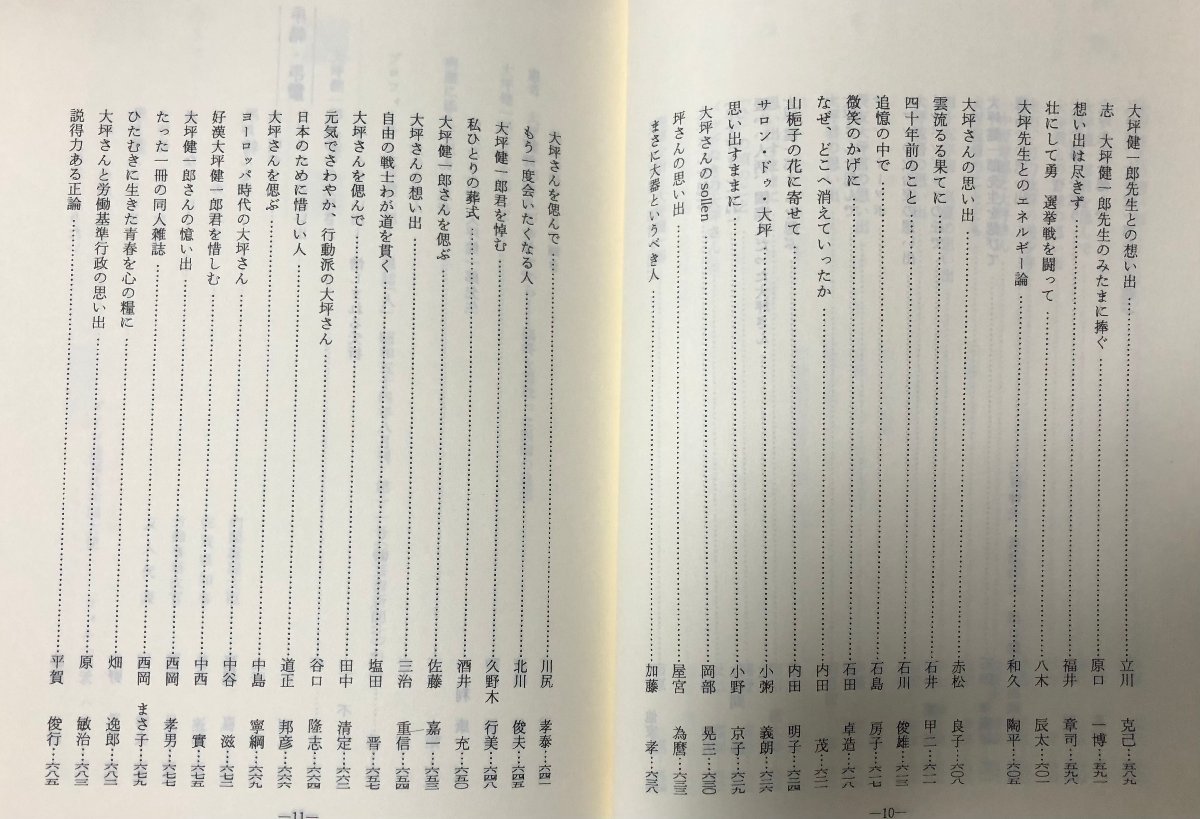 大坪健一郎先生との想い出……立川 克己…五八九
志 大坪健一郎先生のみたまに捧ぐ……原口 一博…五九一
想い出は尽きず……福井 章司…五九八
壮にして勇 選挙戦を闘って……八木 辰太…六〇一
大坪先生とのエネルギー論……和久 陶平…六〇五
大坪さんの思い出……赤松 良子…六〇八
雲流るる果てに……石井 甲二…六一一
四十年前のこと……石川 俊雄…六一三
追憶の中で……石島 房子…六一七
微笑のかげに……石田 卓造…六一八
なぜ、どこへ消えていったか……内田 茂…六二一
山梔子の花に寄せて……内田 明子…六二四
サロン・ドゥ・大坪……小粥 義朗…六二六
思い出すままに……小野 京子…六二九
大坪さんのsollen……岡部 晃三…六三〇
坪さんの思い出……屋宮 為麿…六三三
まさに大器というべき人……加藤 孝…六三八
―10―
大坪さんを偲んで……川尻 孝泰…六四一
もう一度会いたくなる人……北川 俊夫…六四五
大坪健一郎君を悼む……久野木 行美…六四八
私ひとりの葬式……酒井 充…六五〇
大坪健一郎さんを偲ぶ……佐藤 嘉一…六五三
大坪さんの想い出……三治 重信…六五四
自由の戦士わが道を貫く……塩田 晋…六五七
大坪さんを偲んで……田中 清定…六六二
元気でさわやか、行動派の大坪さん……谷口 隆志…六六四
日本のために惜しい人……道正 邦彦…六六六
大坪さんを偲ぶ……中島 寧綱…六六九
ヨーロッパ時代の大坪さん……中谷 滋…六七二
好漢大坪健一郎君を惜しむ……中西 實…六七五
大坪健一郎さんの憶い出……西岡 孝男…六七七
たった一冊の同人雑誌……西岡 まさ子…六七九
ひたむきに生きた青春を心の糧に……畑 逸郎…六八二
大坪さんと労働基準行政の思い出……原 敏治…六八三
説得力ある正論……平賀 俊行…六八五
―11―